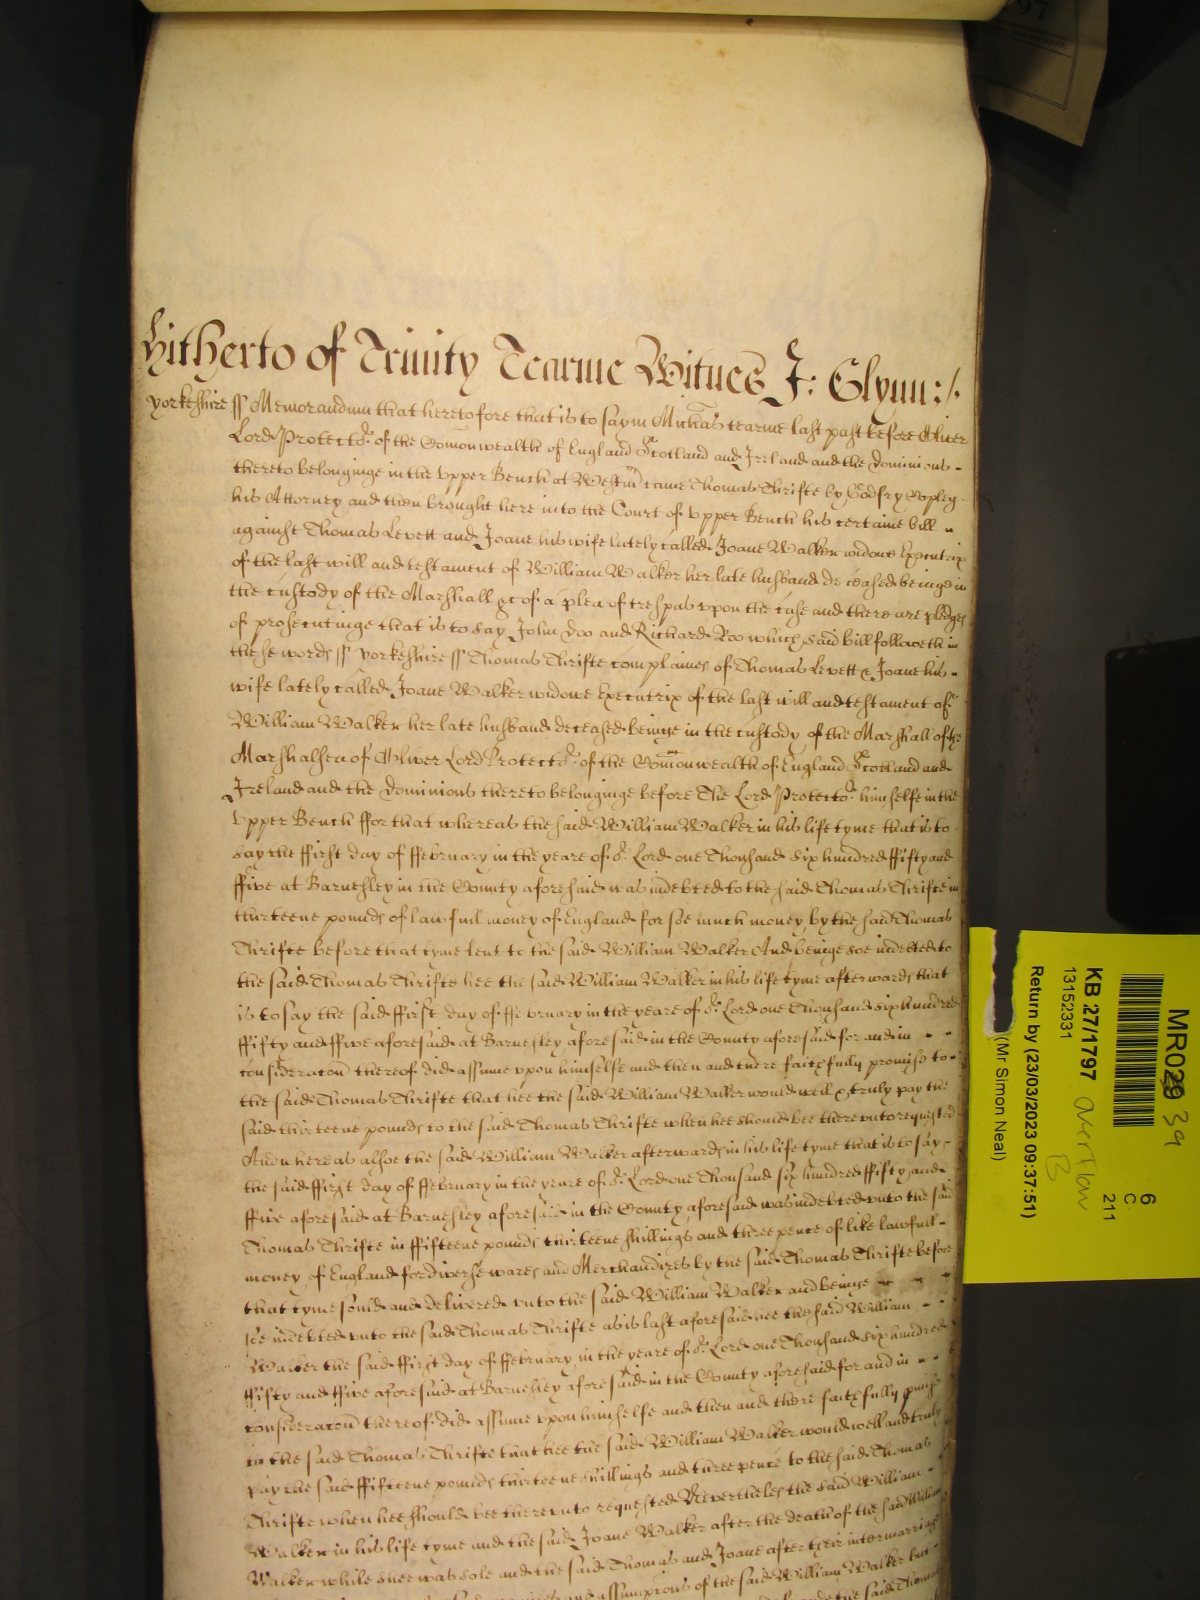 Hitherto of Trinity Tearme Witnes J: Glynn:/.
Yorkeshire ss Memorandum that heretofore that is to say in Michas tearme last past before Oliver
Lord Protector of the Comonwealth of England Scotland and Ireland and the dominions
thereto belonginge in the Vpper Bench at Westm came Thomas Thrifte by Godfry Copley
his Attorney and then brought here into the Court of Vpper Bench his certaine bill
against Thomas Levett and Joane his wife lately called Joane Walker widowe Executrix
of the last will and testament of William Walker her late husband deceased beinge in
the custody of the Marshall &c of a plea of trespas vpon the case and there are pledges
of prosecutinge that is to say John Doo and Richard Roo which said bill followeth in
these words ss Yorkeshire ss Thomas Thrifte complaines of Thomas Levett & Joane his
wife lately called Joane Walker widowe Executrix of the last will and testament of
William Walker her late husband deceased beinge in the custody of the Marshall of the
Marshalsea of Oliver Lord Protector of the Comonwealth of England Scotland and
Ireland and the dominions thereto belonginge before the Lord Protector himselfe in the
Vpper Bench ffor that whereas the said William Walker in his life tyme that is to
say the ffirst day of ffebruary in the yeare of or Lord one Thousand six hundred ffifty and
ffive at Barnesley in the County aforesaid was indebted to the said Thomas Thrifte in
thirteene pounds of lawfull money of England for soe much money by the said Thomas
Thrifte before that tyme lent to the said William Walker And beinge soe indebted to
the said Thomas Thrifte hee the said William Walker in his life tyme afterwards that
is to say the said ffirst day of ffebruary in the yeare of or Lord one Thousand six hundred
ffifty and ffive aforesaid at Barnesley aforesaid in the County aforesaid for and in
consideracon thereof did assume vpon himselfe and then and there faithfully promise to
the said Thomas Thrifte that hee the said William Walker would well & truly pay the
said thirteene pounds to the said Thomas Thrifte when hee should bee therevnto requested
And whereas alsoe the said William Walker afterwards in his life tyme that is to say
the said ffirst day of ffebruary in the yeare of or Lord one Thousand six hundred ffifty and
ffive aforesaid at Barnesley aforesaid in the County aforesaid was indebted vnto the said
Thomas Thrifte in ffifteene pounds thirteene shillings and three pence of like lawfull
money of England for diverse wares and Merchandizes by the said Thomas Thrifte before
that tyme sould and delivered vnto the said William Walker and beinge
soe indebted vnto the said Thomas Thrifte as is last aforesaid hee the said William
Walker the said ffirst day of ffebruary in the yeare of or Lord one Thousand six hundred
ffifty and ffive aforesaid at Barnesley aforesaid in the County aforesaid for and in
consideracon thereof did assume vpon himselfe and then and there faithfully pmise
to the said Thomas Thrifte that hee the said William Walker would well and truly
pay the said ffifteene pounds thirteene shillings and three pence to the said Thomas
Thrifte when hee should bee therevnto requested Neverthelesse the said William
Walker in his life tyme and the said Joane Walker after the death of the said William
Walker while shee was sole and the said Thomas and Joane after their intermarriage
and assumptions of the said William Walker but
the said Thomas
MR029 39
6
C
211
KB 27/1797 Overflow
B
13152331
Return by (23/03/2023 09:37:51)
(Mr Simon Neal)
97